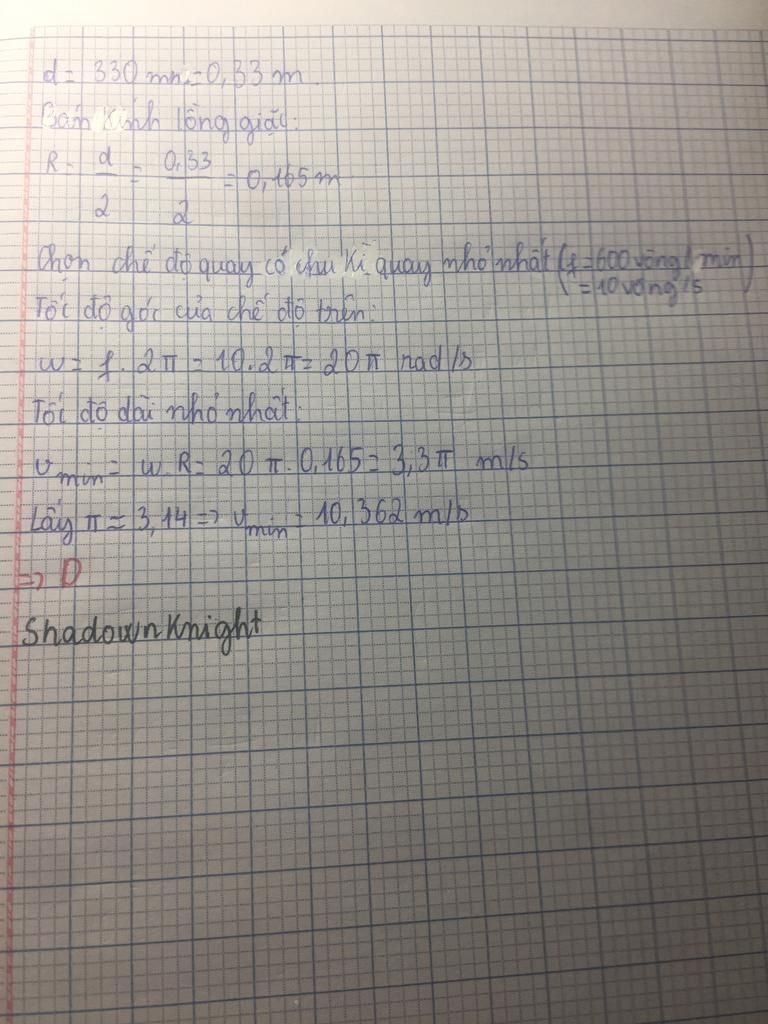 d = 330 mm = 0,33 m
Bán kính lồng giặt:
R = d/2 = 0,33/2 = 0,165 m
Chọn chế độ quay có chu kì quay nhỏ nhất (f = 600 vòng/min = 10 vòng/s)
Tốc độ góc của chế độ trên:
ω = f . 2π = 10.2π = 20π rad/s
Tốc độ dài nhỏ nhất:
v min = ω.R = 20π.0,165 = 3,3π m/s
Lấy π = 3,14 => v min = 10,362 m/s
=> D
Shadown Knight